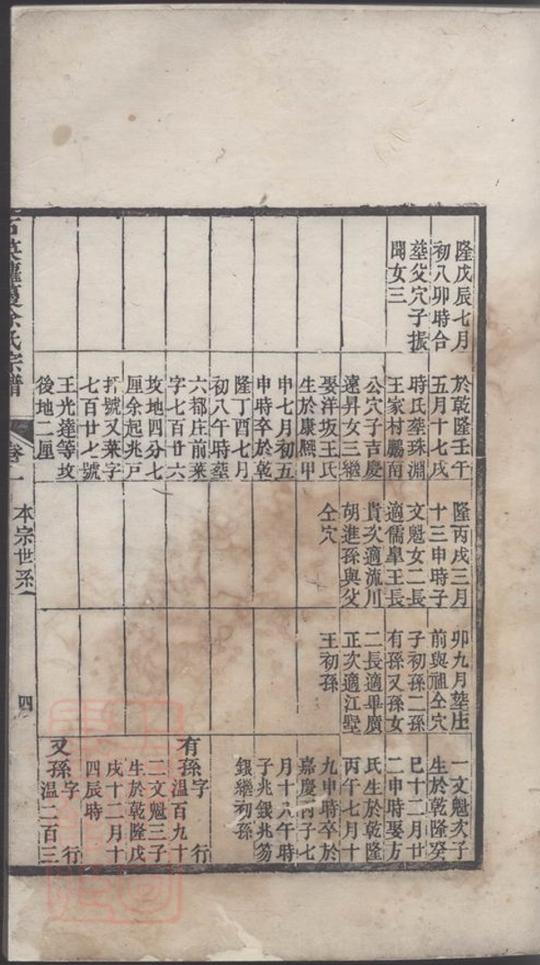 隆戊辰七月
初八卯時合
塟父穴子振
聞女三
於乾隆壬午
五月十七戌
時氏塟珠淵
王家村鵬南
公穴子吉慶
遠昇女三繼
娶洋坂王氏
生於康熈甲
申七月初五
申時卒於乾
隆丁酉七月
初八午時塟
六都庄前菜
字七百廿六
坟地四分七
厘余起兆戸
打號又菜字
七百廿七號
王光達等坟
後地二厘
隆丙戌三月
十三申時子
文魁女二長
適儒臯王長
貴次適流川
胡進孫與父
仝穴
卯九月塟庄
前與祖仝穴
子初孫二孫
有孫又孫女
二長適畢廣
正次適江墅
王初孫
一文魁次子
生於乾隆癸
巳十二月廿
二申時娶方
氏生於乾隆
丙午七月十
九申時卒於
嘉慶丙子七
月十八午時
子兆錢兆芴
錢繼初孫
有孫字行
温百九十
二文魁三子
生於乾隆戊
戌十二月十
四辰時
又孫字行
温二百三
余氏宗譜
卷一
本宗世系
四